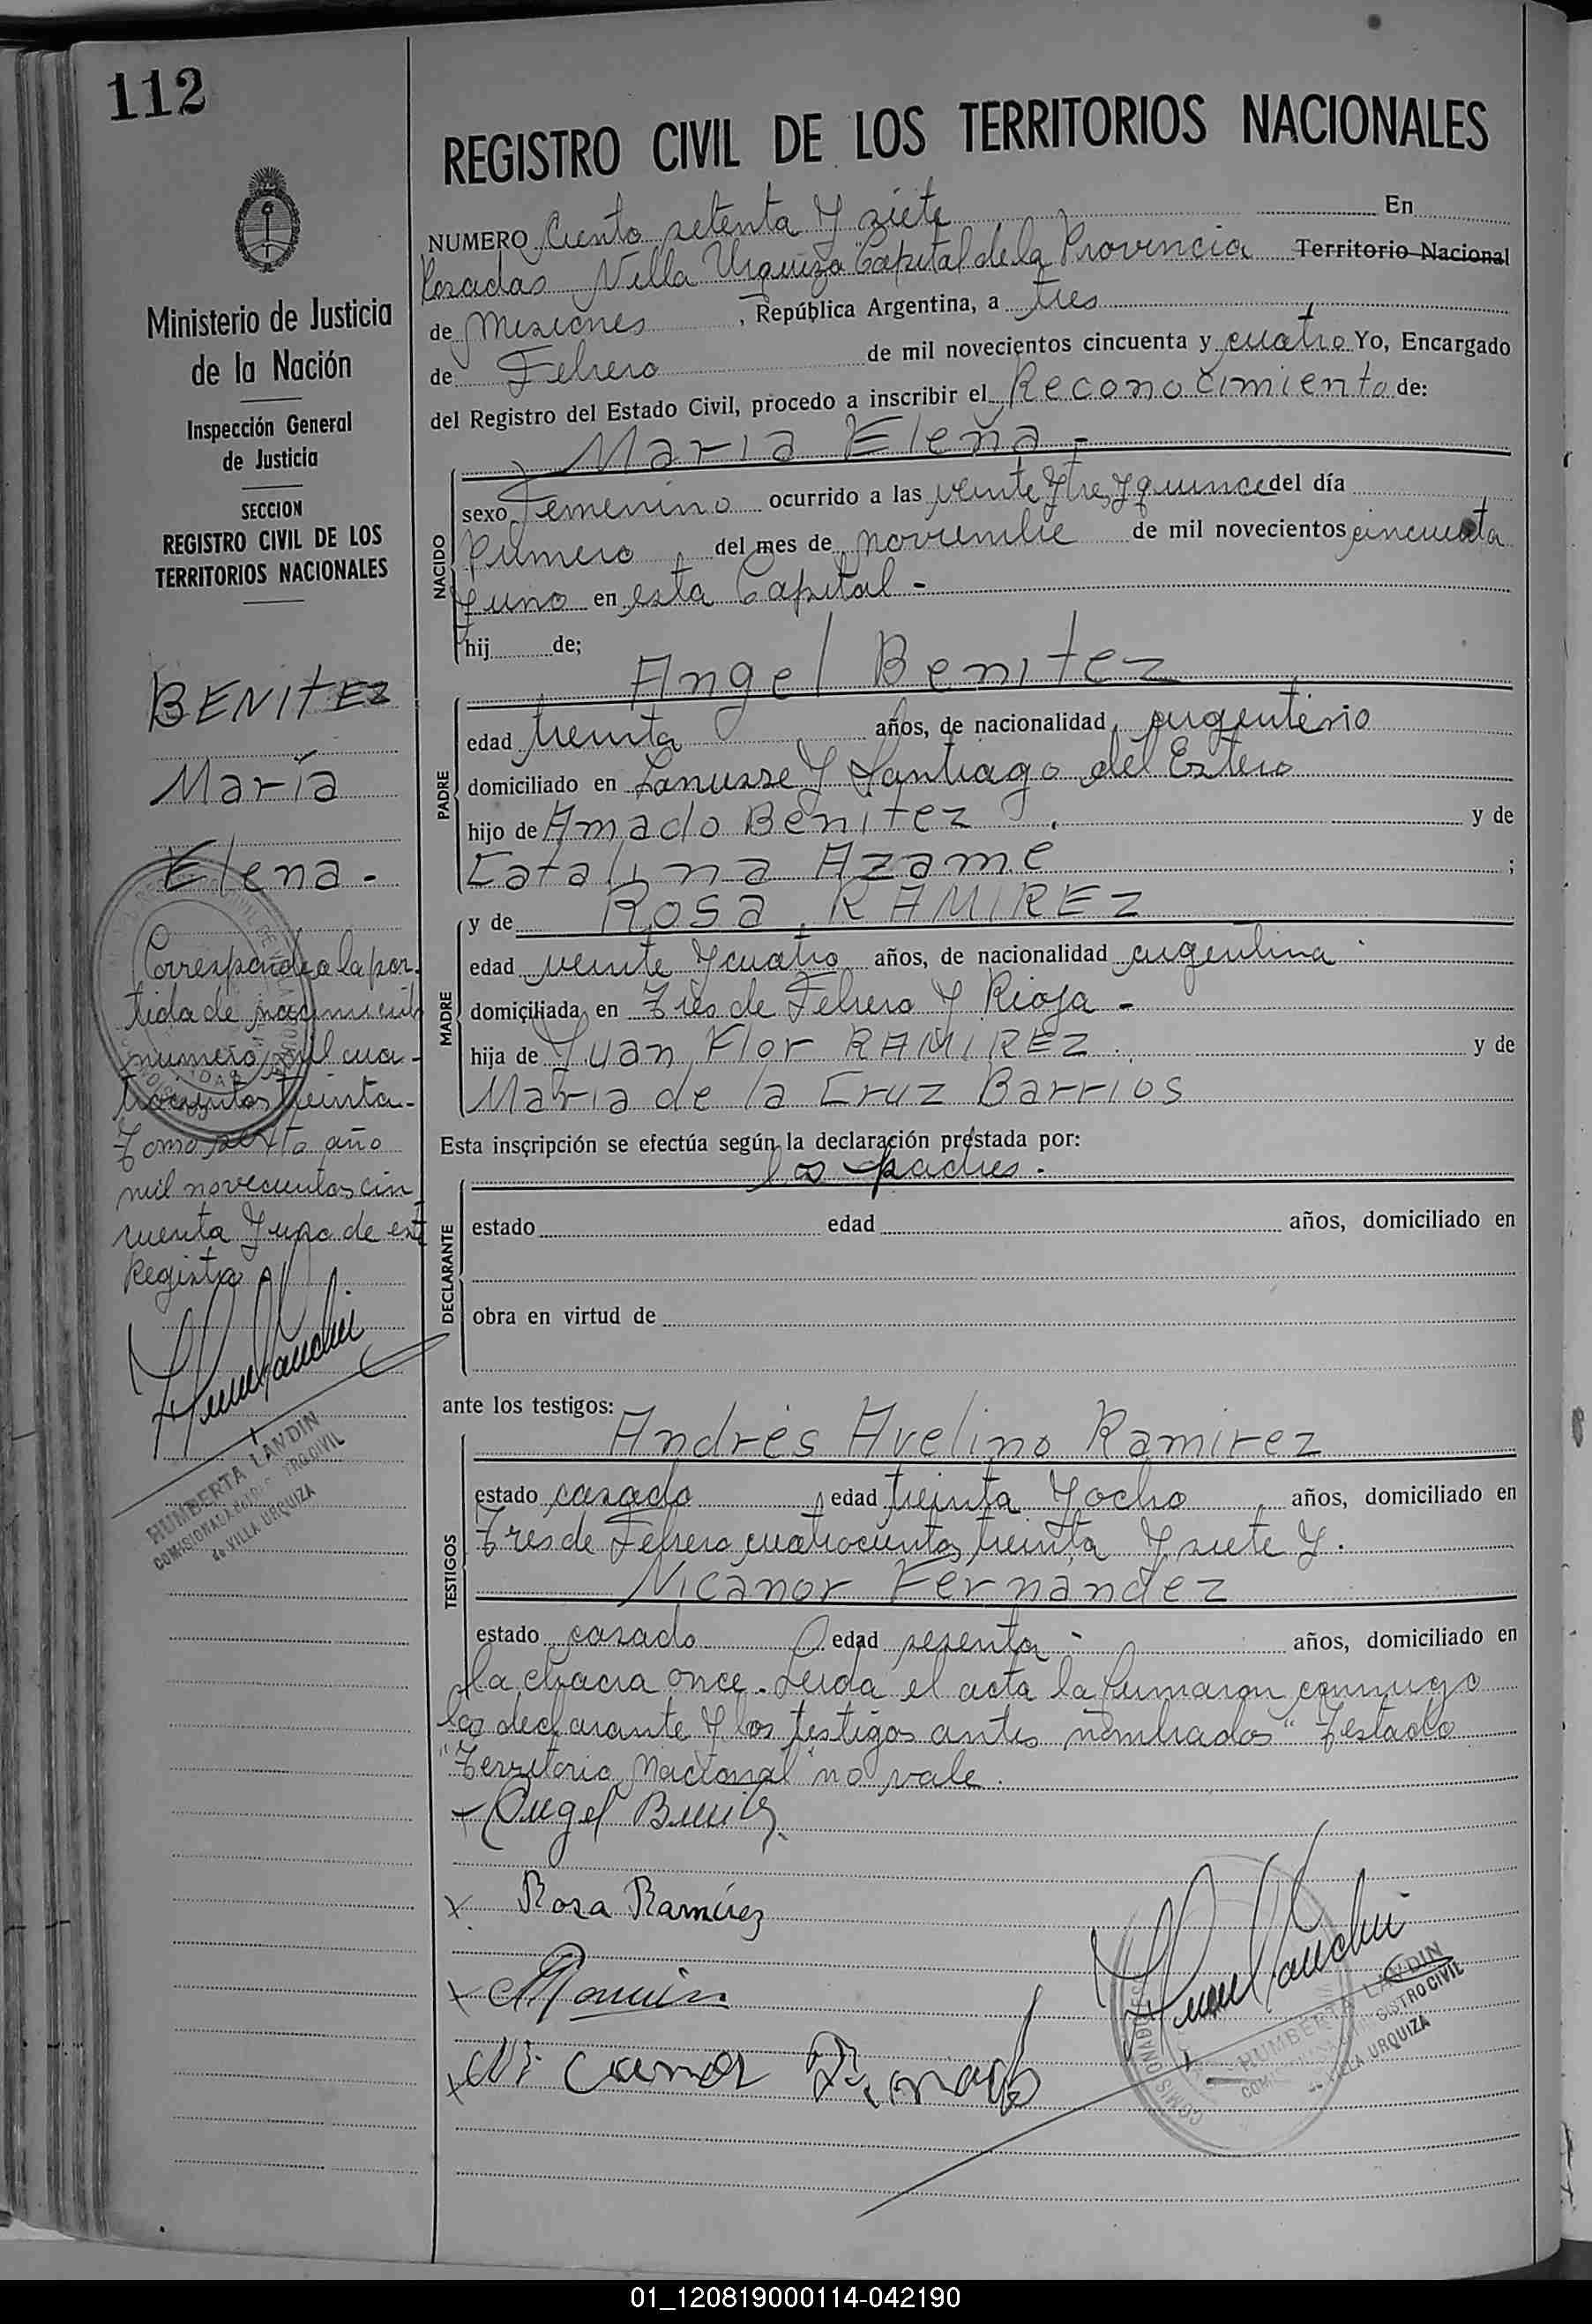 112
Ministerio de Justicia
de la Nación
Inspección General
de Justicia
SECCION
REGISTRO CIVIL DE LOS
TERRITORIOS NACIONALES
BENITEZ
María
Elena -
Corresponde a la par-
tida de nacimiento
numero mil cua-
trocientos treinta-
Tomo sexto año
mil novecientos cin
cuenta y uno de este
Registro
HUMBERTA LANDIN
de VILLA URQUIZA
REGISTRO CIVIL DE LOS TERRITORIOS NACIONALES
NUMERO Ciento setenta y siete En
Posadas Villa Urquiza Capital de la Provincia Territorio Nacional
de Misiones, República Argentina, a tres
de Febrero de mil novecientos cincuenta y cuatro Yo, Encargado
del Registro del Estado Civil, procedo a inscribir el Reconocimiento de:
María Elena -
NACIDO
sexo Femenino ocurrido a las veinte y tres y quince del día
primero del mes de noviembre de mil novecientos cincuenta
y uno en esta Capital -
hij de;
Angel Benitez
PADRE
edad treinta años, de nacionalidad argentino
domiciliado en Lanusse y Santiago del Estero
hijo de Amado Benitez y de
Catalina Azame ;
MADRE
y de Rosa RAMIREZ
edad veinte y cuatro años, de nacionalidad argentina
domiciliada en Tres de Febrero y Rioja -
hija de Juan Flor RAMIREZ y de
Maria de la Cruz Barrios
Esta inscripción se efectúa según la declaración prestada por:
los padres.
DECLARANTE
estado edad años, domiciliado en
obra en virtud de
ante los testigos:
Andrés Avelino Ramirez
TESTIGOS
estado casado edad treinta y ocho años, domiciliado en
Tres de Febrero cuatrocientos treinta y siete y.
Nicanor Fernandez
estado casado edad sesenta - años, domiciliado en
la chacra once. Leida el acta la firmaron conmigo
los declarante y los testigos antes nombrados "Testado
"Territorio Nacional" no vale.
Angel Benitez
Rosa Ramírez
Nicanor
HUMBERTA LANDIN
de VILLA URQUIZA
01_120819000114-042190